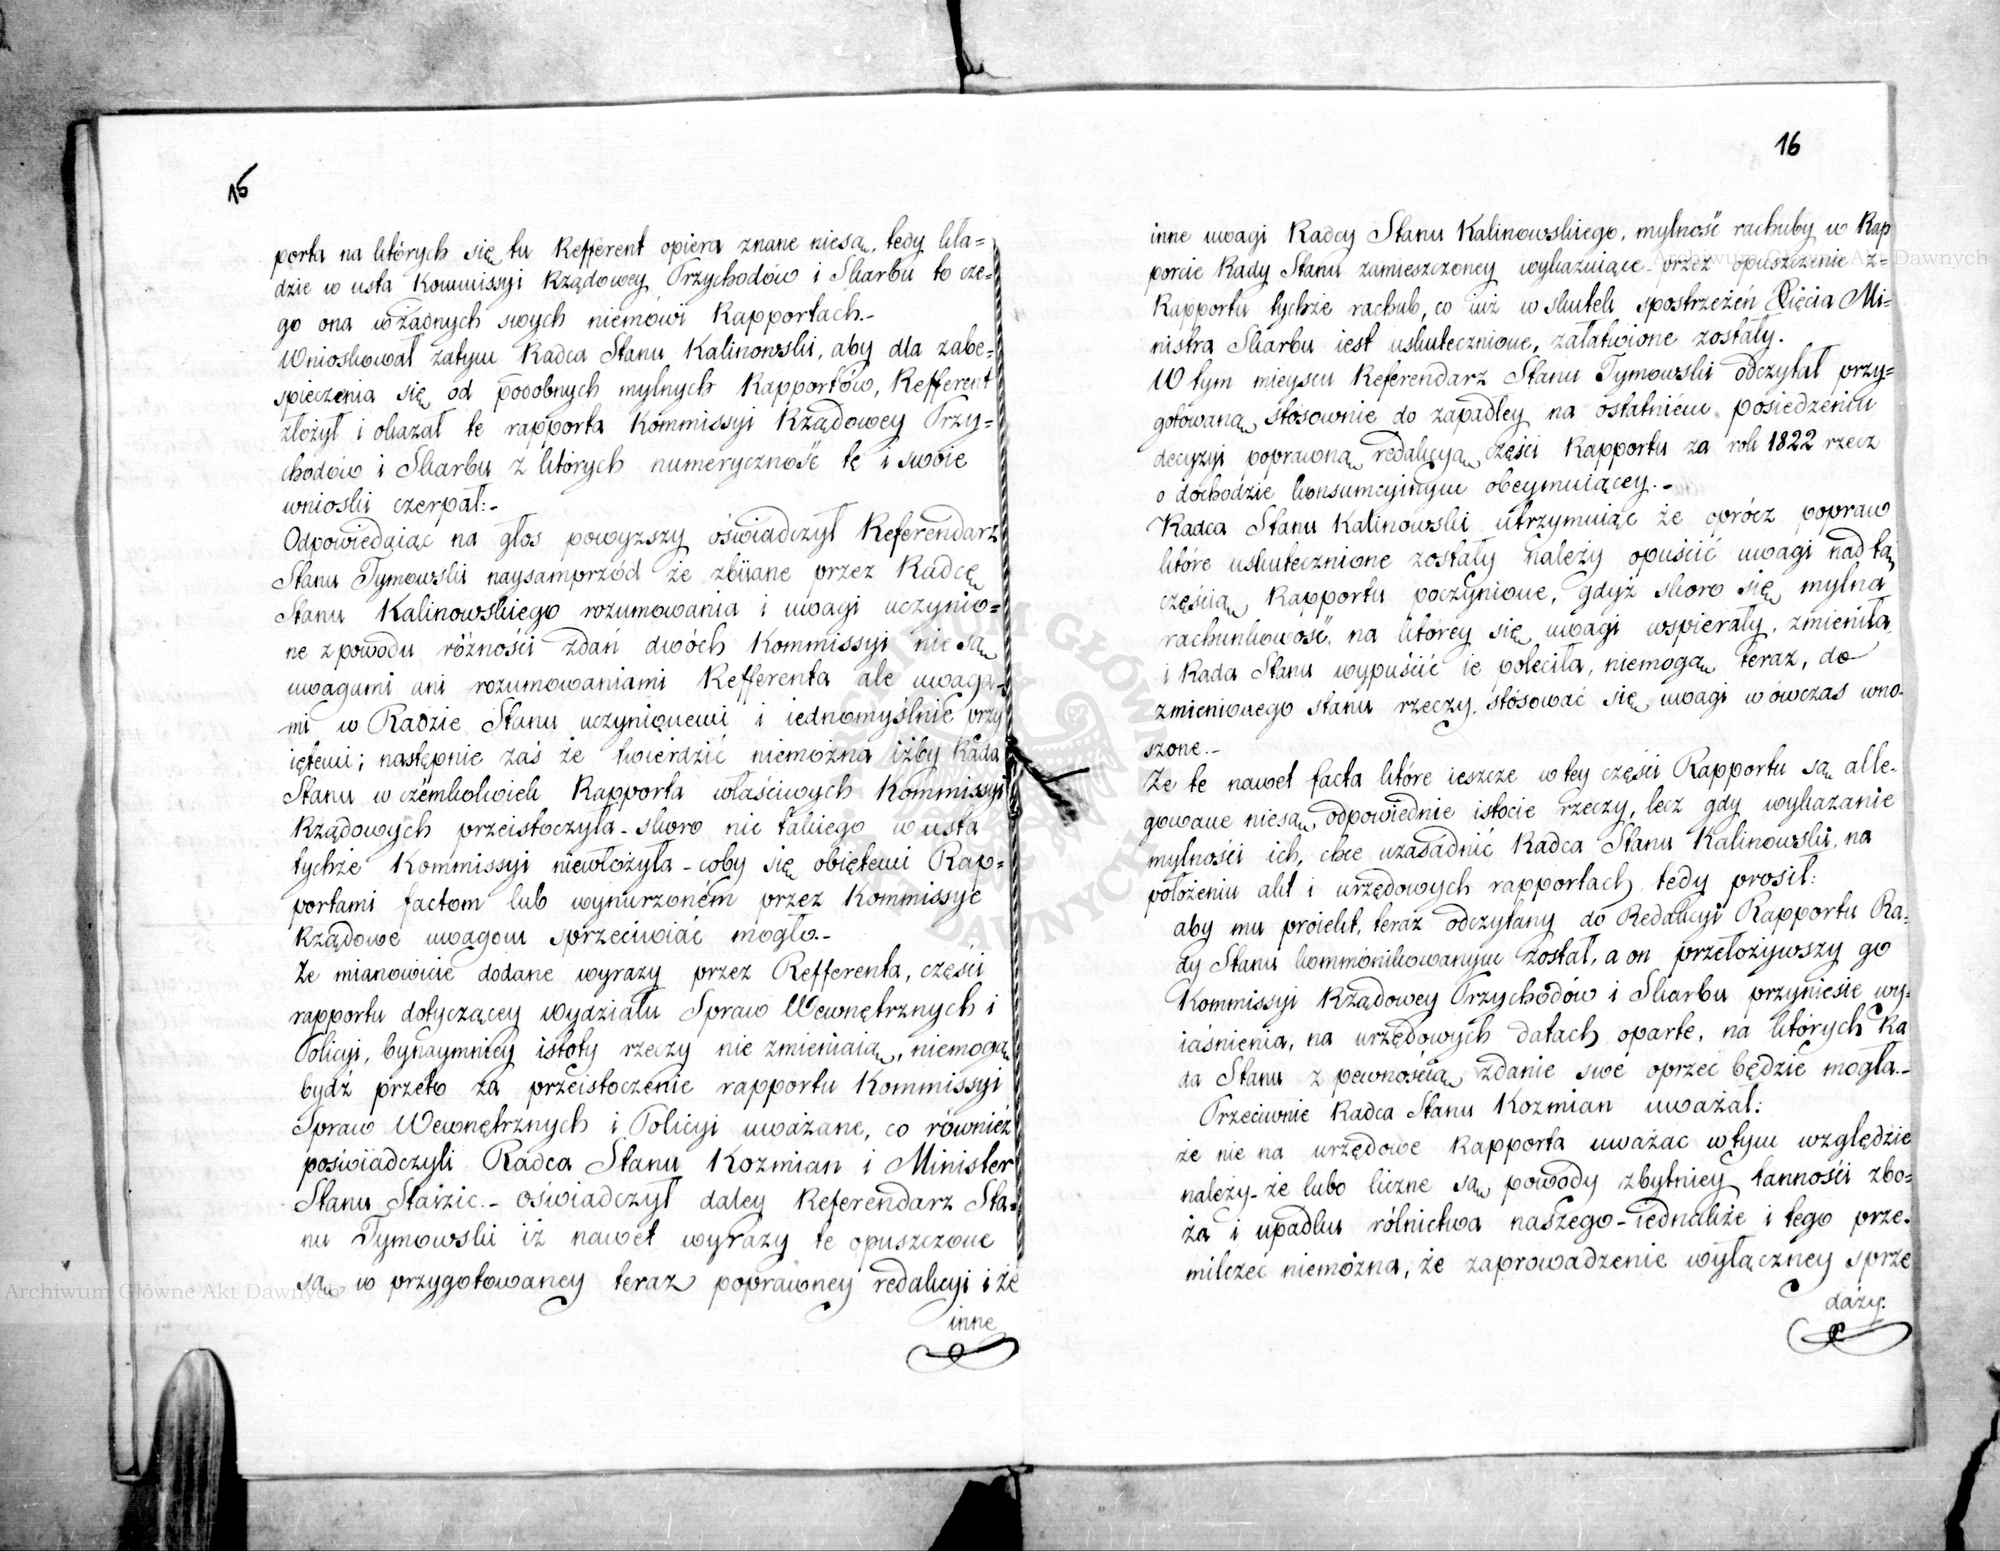 15
porta na których się tu Refferent opiera znane niesą, tedy kła=
dzie w usta Kommissyi Rządowey Przychodów i Skarbu to cze=
go ona w żadnych swych niemówi Rapportach.-
Wnioskował zatym Radca Stanu Kalinowski, aby dla zabe=
spieczenia się od podobnych mylnych Rapportów, Refferent
złożył i okazał te rapporta Kommissyi Rządowey Przy=
chodów i Skarbu z których numeryczność tę i swoie
wnioski czerpał:-
Odpowiedaiąc na głos powyższy oświadczył Referendarz
Stanu Tymowski naysamprzód że zbiiane przez Radcę
Stanu Kalinowskiego rozumowania i uwagi uczynio=
ne z powodu różności zdań dwóch Kommissyi nie są
uwagami ani rozumowaniami Refferenta ale uwaga=
mi w Radzie Stanu uczynionemi i iednomyślnie przy
iętemi; następnie zaś że twierdzić niemożna iżby Rada
Stanu w czémkolwiek Rapporta właściwych Kommissyi
Rządowych przeistoczyła - skoro nic takiego w usta
tychże Kommissyi niewłożyła - coby się obiętemi Rap=
portami factom lub wynurzoném przez Kommissye
Rządowe uwagom sprzeciwiać mogło.-
Że mianowicie dodane wyrazy przez Refferenta, części
rapportu dotyczącey wydziału Spraw Wewnętrznych i
Policyi, bynaymniey istoty rzeczy nie zmieniaią, niemogą
bydź przeto za przeistoczenie rapportu Kommissyi
Spraw Wewnętrznych i Policyi uważane, co również
poświadczyli Radca Stanu Kozmian i Minister
Stanu Staszic.- oświadczył daley Referendarz Sta=
nu Tymowski iż nawet wyrazy te opuszczone
są w przygotowaney teraz poprawney redakcyi i że
inne
16
inne uwagi Radcy Stanu Kalinowskiego, mylność rachuby w Rap
porcie Rady Stanu zamieszczoney wykazuiące przez opuszczenie z=
Rapportu tychże rachub, co iuż w skutek spostrzeżeń Xięcia Mi=
nistra Skarbu iest uskutecznione, załatwione zostały.
W tym mieyscu Referendarz Stanu Tymowski odczytał przy=
gotowaną stósownie do zapadłey na ostatniém posiedzeniu
decyzyi poprawną redakcyą części Rapportu za rok 1822 rzecz
o dochodzie konsumcyinym obeymuiącey.-
Radca Stanu Kalinowski utrzymuiąc że oprócz popraw
które uskutecznione zostały należy opuścić uwagi nad tą
częścią Rapportu poczynione, gdyż skoro się mylna
rachunkowość, na którey się uwagi wspierały, zmieniła
i Rada Stanu wypuścić ie poleciła, niemogą teraz, do
zmienionego stanu rzeczy, stósować się uwagi wówczas wno-
szone.-
Że te nawet facta które ieszcze w tey części Rapportu są alle-
gowane niesą odpowiednie istocie rzeczy, lecz gdy wykazanie
mylności ich, chce uzasadnić Radca Stanu Kalinowski, na
położeniu akt i urzędowych rapportach, tedy prosił:
aby mu proiekt, teraz odczytany do Redakcyi Rapportu Ra-
dy Stanu kommónikowanym został, a on przełożywszy go
Kommissyi Rządowey Przychodów i Skarbu przyniesie wy-
iaśnienia, na urzędowych datach oparte, na których Ra
da Stanu z pewnością zdanie swe oprzeć będzie mogła.-
Przeciwnie Radca Stanu Kozmian uważał:
że nie na urzędowe Rapporta uważac w tym względzie
należy - że lubo liczne są powody zbytniey tanności zbo-
ża i upadku rólnictwa naszego - iednakże i tego prze-
milczec niemożna, że zaprowadzenie wyłączney sprze
daży.